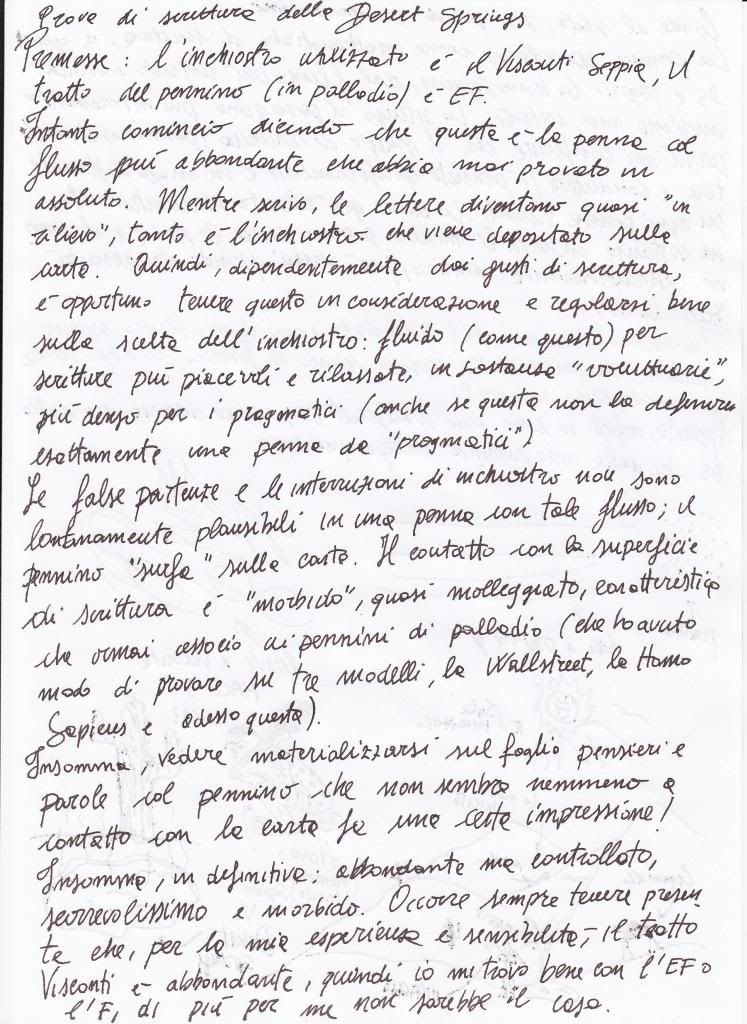 Prove di scrittura della Desert Springs
Premesse: l'inchiostro utilizzato è il Visconti Seppia, il
tratto del pennino (in palladio) è EF.
Intanto comincio dicendo che questa è la penna col
flusso più abbondante che abbia mai provato in
assoluto. Mentre scrivo, le lettere diventano quasi "in
rilievo", tanto è l'inchiostro che viene depositato sulla
carta. Quindi, dipendentemente dai gusti di scrittura,
è opportuno tenere questo in considerazione e regolarsi bene
sulla scelta dell'inchiostro: fluido (come questo) per
scritture più piacevoli e rilassate, in sostanza "voluttuarie",
più denso per i pragmatici (anche se questa non la definirei
esattamente una penna da "pragmatici").
Le false partenze e le interruzioni di inchiostro non sono
lontanamente plausibili in una penna con tale flusso; il
pennino "surfa" sulla carta. Il contatto con la superficie
di scrittura è "morbido", quasi molleggiato, caratteristica
che ormai associo ai pennini di palladio (che ho avuto
modo di provare su tre modelli, la Wallstreet, la Homo
Sapiens e adesso questa).
Insomma, vedere materializzarsi sul foglio pensieri e
parole col pennino che non sembra nemmeno a
contatto con la carta fa una certa impressione!
Insomma, in definitiva: abbondante ma controllato,
scorrevolissimo e morbido. Occorre sempre tenere presen
te che, per la mia esperienza e sensibilità, il tratto
Visconti è abbondante, quindi io mi trovo bene con l'EF o
l'F, di più per me non sarebbe il caso.